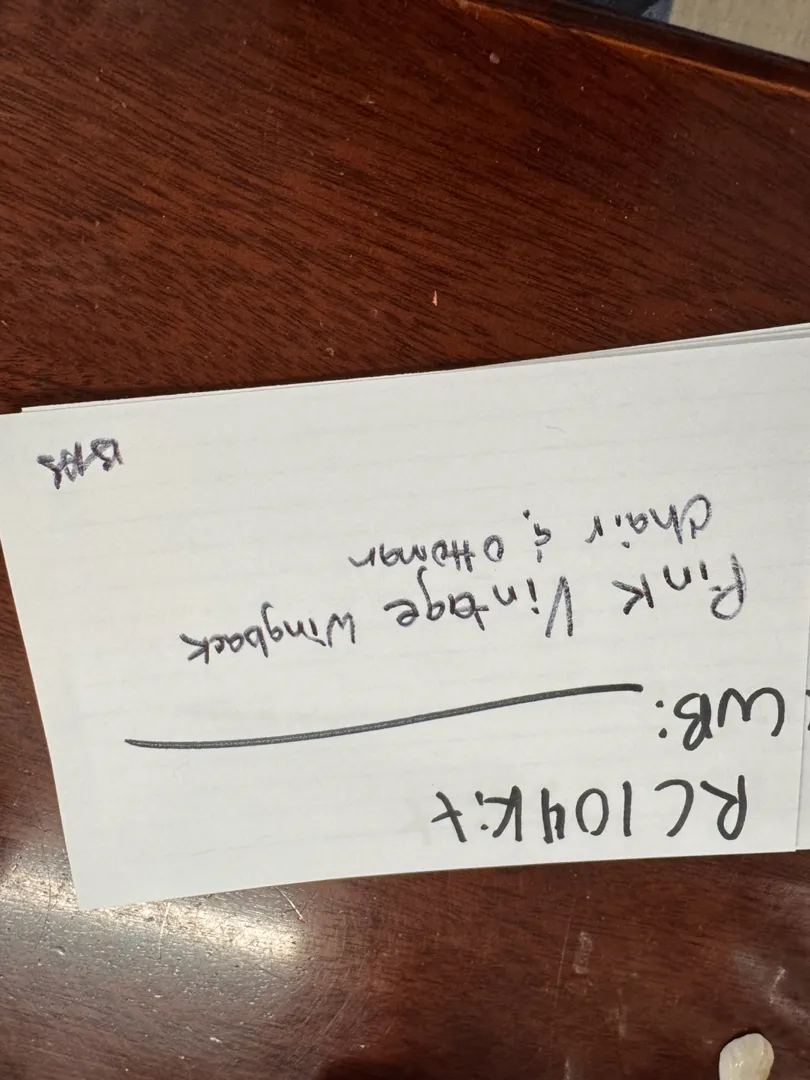 RC104Kit
WB:
Pink Vintage Wingback
Chair & Ottoman